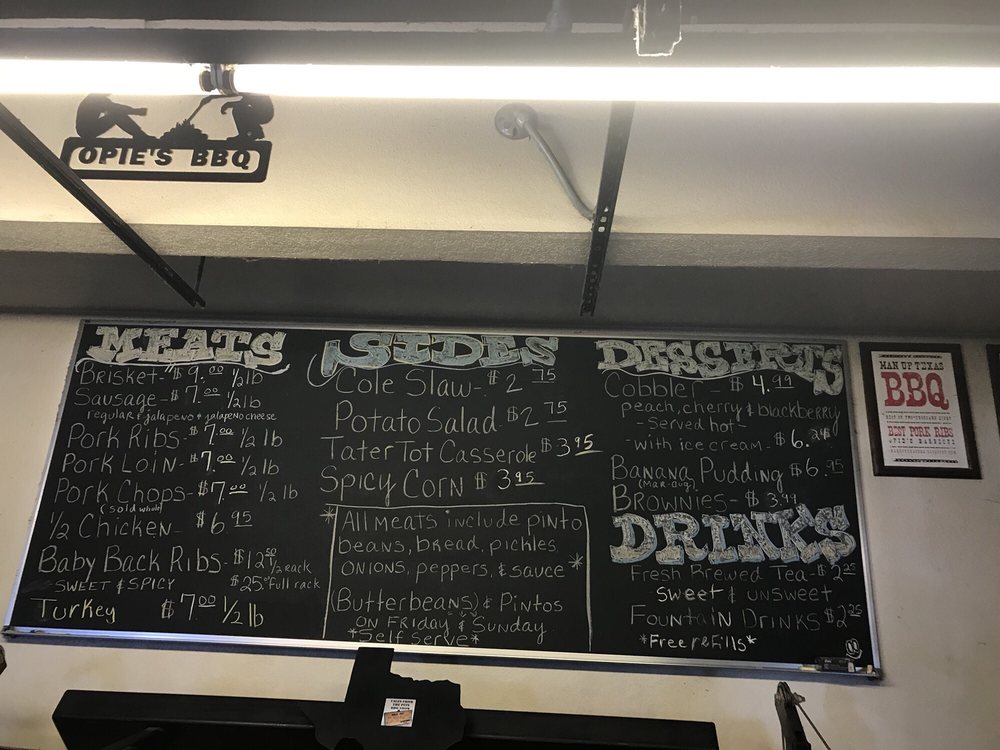 OPIE'S BBQ
MEATS
Brisket- $9.00 1/2 lb
Sausage- $7.00 1/2 lb
regular & jalapeno & jalapeno cheese
Pork Ribs- $7.00 1/2 lb
Pork Loin- $7.00 1/2 lb
Pork Chops- $7.00 1/2 lb
(sold whole)
1/2 Chicken- $6.95
Baby Back Ribs- $12.50 1/2 rack
SWEET & SPICY $25.00 full rack
Turkey $7.00 1/2 lb
SIDES
Cole Slaw- $2.75
Potato Salad $2.75
Tater Tot Casserole $3.95
Spicy Corn $3.95
*All meats include pinto
beans, bread, pickles
onions, peppers, & sauce*
(Butterbeans) & Pintos
on Friday & Sunday
*Self serve*
DESSERTS
Cobbler- $4.99
peach, cherry & blackberry
- served hot -
with ice cream- $6.
Banana Pudding $6.95
(Mar-Aug)
Brownies- $3.99
DRINKS
Fresh Brewed Tea- $2.25
Sweet & unsweet
Fountain Drinks $2.25
*Free refills*
MAN UP TEXAS
BBQ
BEST PORK RIBS
OPIE'S BARBECUE
TALES FROM
THE PITS